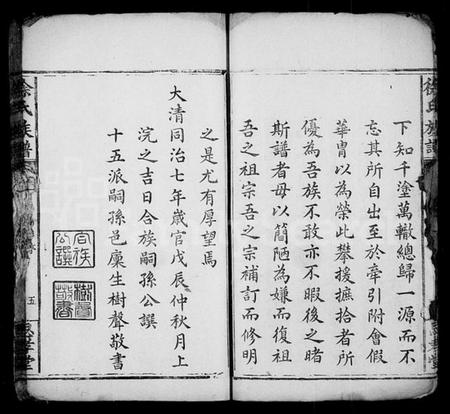 下知千塗萬轍總歸一源而不
忘其所自出至於牽引附會假
華冑以為榮此攀援摭拾者所
優為吾族不敢亦不暇後之睹
斯譜者毋以簡陋為嫌而復祖
吾之祖宗吾之宗補訂而修明
之是尤有厚望焉
大清同治七年歲官戊辰仲秋月上
浣之吉日合族嗣孫公譔
十五派嗣孫邑庠生樹聲敬書
合族公譔
樹聲敬書
徐氏族譜
五
徐氏族譜